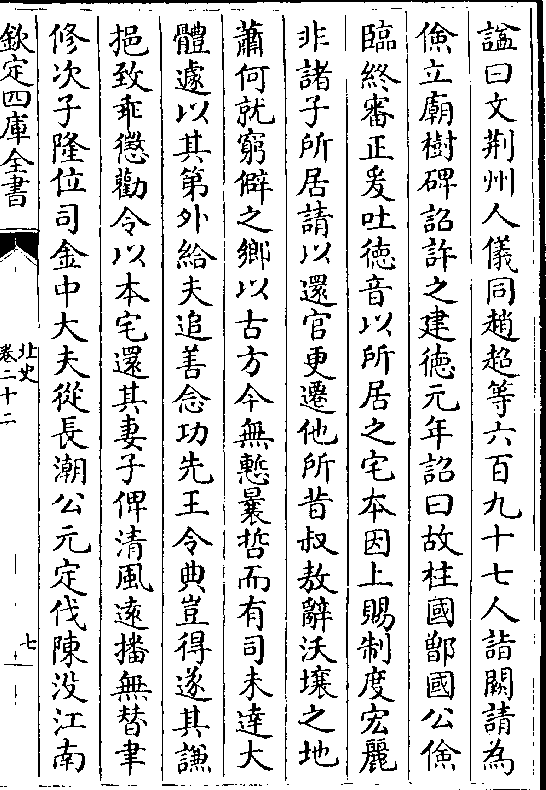 諡曰文荆州人儀同趙超等六百九十七人詣闕請為
儉立廟樹碑詔許之建徳元年詔曰故柱國鄫國公儉
臨終審正爰吐徳音以所居之宅本因上賜制度宏麗
非諸子所居請以還官更遷他所昔叔敖辭沃壤之地
蕭何就窮僻之鄉以古方今無慙曩哲而有司未達大
體遽以其第外給夫追善念功先王令典豈得遂其謙
挹致乖懲勸令以本宅還其妻子俾清風遠播無替聿
修次子隆位司金中大夫從長潮公元定伐陳没江南
欽定四庫全書
北史
卷二十二
七